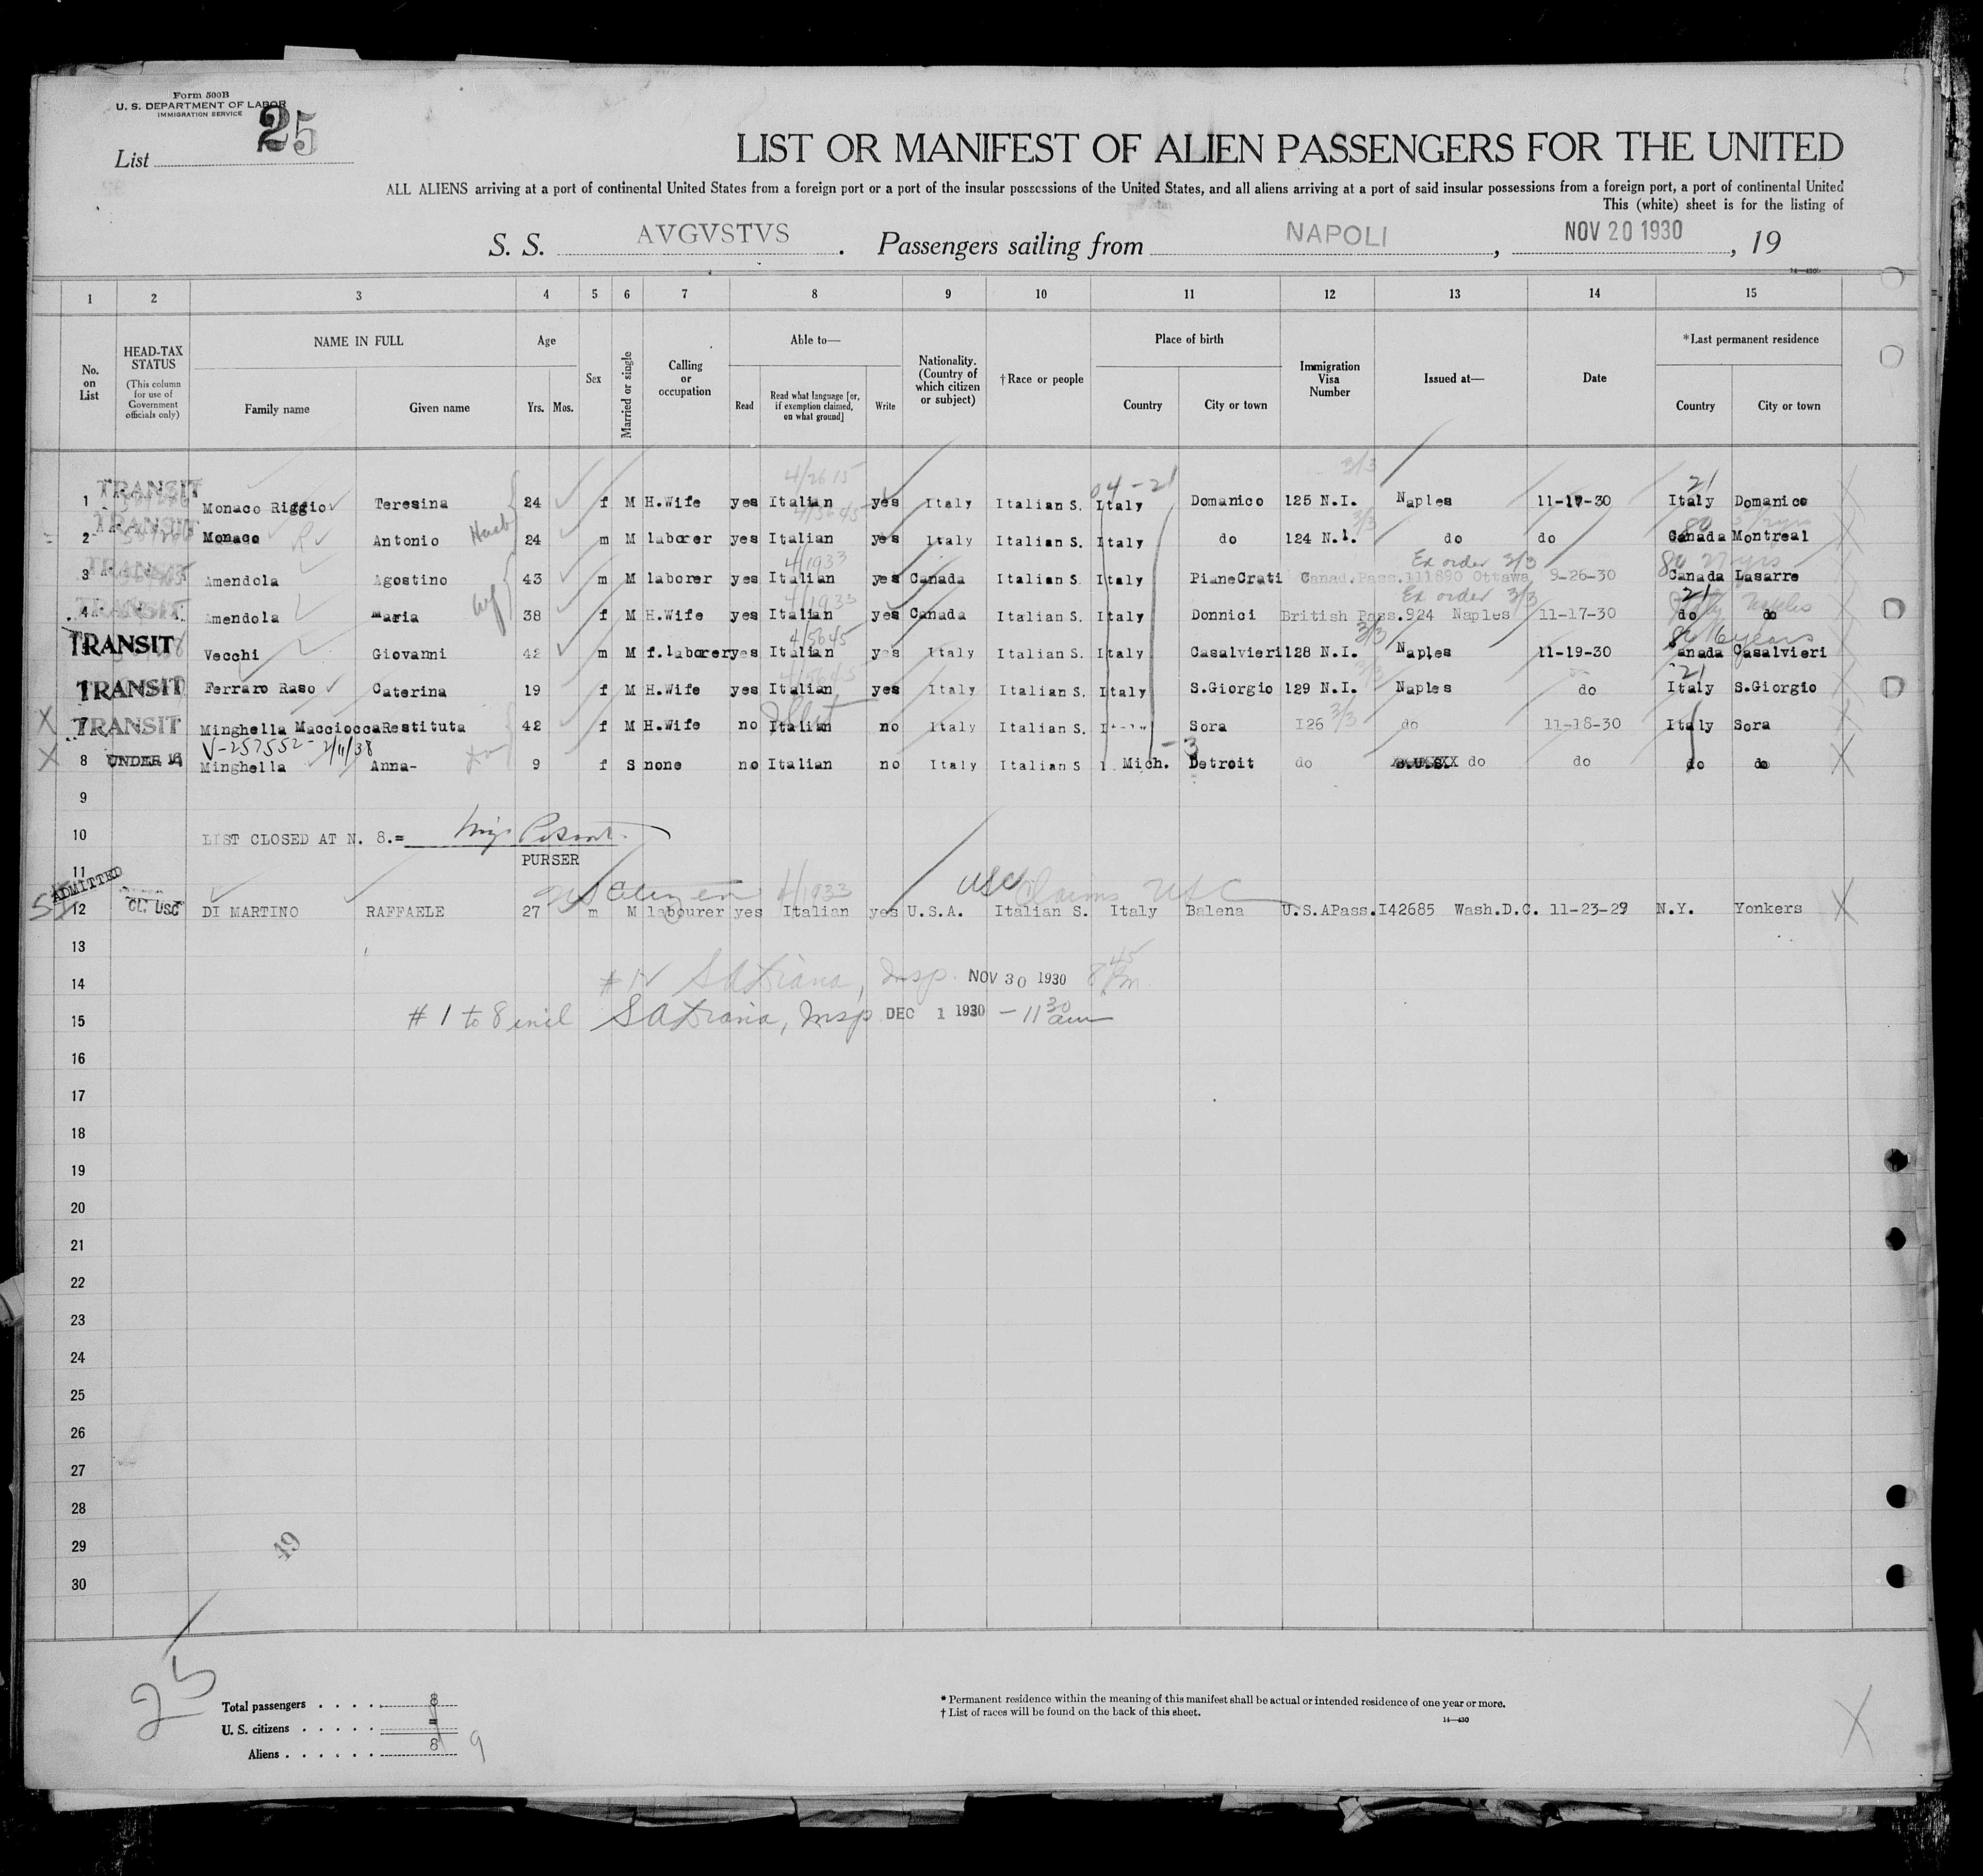 Form 500B
U. S. DEPARTMENT OF LABOR
IMMIGRATION SERVICE
List 25
LIST OR MANIFEST OF ALIEN PASSENGERS FOR THE UNITED
ALL ALIENS arriving at a port of continental United States from a foreign port or a port of the insular possessions of the United States, and all aliens arriving at a port of said insular possessions from a foreign port, a port of continental United
This (white) sheet is for the listing of
S. S. AVGVSTVS. Passengers sailing from NAPOLI, NOV 20 1930, 19
14—430
1 2 3 4 5 6 7 8 9 10 11 12 13 14 15
No. on List
HEAD-TAX STATUS
(This column for use of Government officials only)
NAME IN FULL
Family name
Given name
Age
Yrs. Mos.
Sex
Married or single
Calling or occupation
Able to—
Read
Read what language [or, if exemption claimed, on what ground]
Write
Nationality. (Country of which citizen or subject)
† Race or people
Place of birth
Country
City or town
Immigration Visa Number
Issued at—
Date
* Last permanent residence
Country
City or town
3/3
04-21 21
1 TRANSIT Monaco Riggio Teresina 24 f M H.Wife yes Italian yes Italy Italian S. Italy Domanico 125 N.I. Naples 11-17-30 Italy Domanico
3/3 80
2 TRANSIT Monaco R Antonio Husb 24 m M laborer yes Italian yes Italy Italian S. Italy do 124 N.I. do do Canada Montreal
4/1933 Ex order 3/3 80 27 yrs
3 TRANSIT Amendola Agostino 43 m M laborer yes Italian yes Canada Italian S. Italy PianeCrati Canad.Pass.111890 Ottawa 9-26-30 Canada Lasarre
4/1933 Ex order 3/3 21 Italy Naples
4 TRANSIT Amendola Maria wf 38 f M H.Wife yes Italian yes Canada Italian S. Italy Donnici British Pass.924 Naples 11-17-30 do do
4/5645 3/3 80 6 years
TRANSIT Vecchi Giovanni 42 m M f.laborer yes Italian yes Italy Italian S. Italy Casalvieri 128 N.I. Naples 11-19-30 Canada Casalvieri
4/5645 3/3 21
TRANSIT Ferraro Raso Caterina 19 f M H.Wife yes Italian yes Italy Italian S. Italy S.Giorgio 129 N.I. Naples do Italy S.Giorgio
X 7 TRANSIT Minghella Macciocca Restituta 42 f M H.Wife no Italian no Italy Italian S. Sora I26 3/3 do 11-18-30 Italy Sora
V-257552- 2/11/38
-3
X 8 UNDER 16 Minghella Anna- 9 f S none no Italian no Italy Italian S Mich. Detroit do do do do do
9
10 LIST CLOSED AT N. 8.=
PURSER
11
ADMITTED
US Citizen 4/1933 USC Claims USC
12 CL. USC DI MARTINO RAFFAELE 27 m M labourer yes Italian yes U.S.A. Italian S. Italy Balena U.S.APass.I42685 Wash.D.C. 11-23-29 N.Y. Yonkers X
13
14 Insp. NOV 30 1930 8 45 Pm.
15 # 1 to 8 incl Insp DEC 1 1930 - 11 30 am
16
17
18
19
20
21
22
23
24
25
26
27
28
29
30
49
25
Total passengers . . . . . 8
U. S. citizens . . . . . =
Aliens . . . . . . 8 9
* Permanent residence within the meaning of this manifest shall be actual or intended residence of one year or more.
† List of races will be found on the back of this sheet.
14—430
X